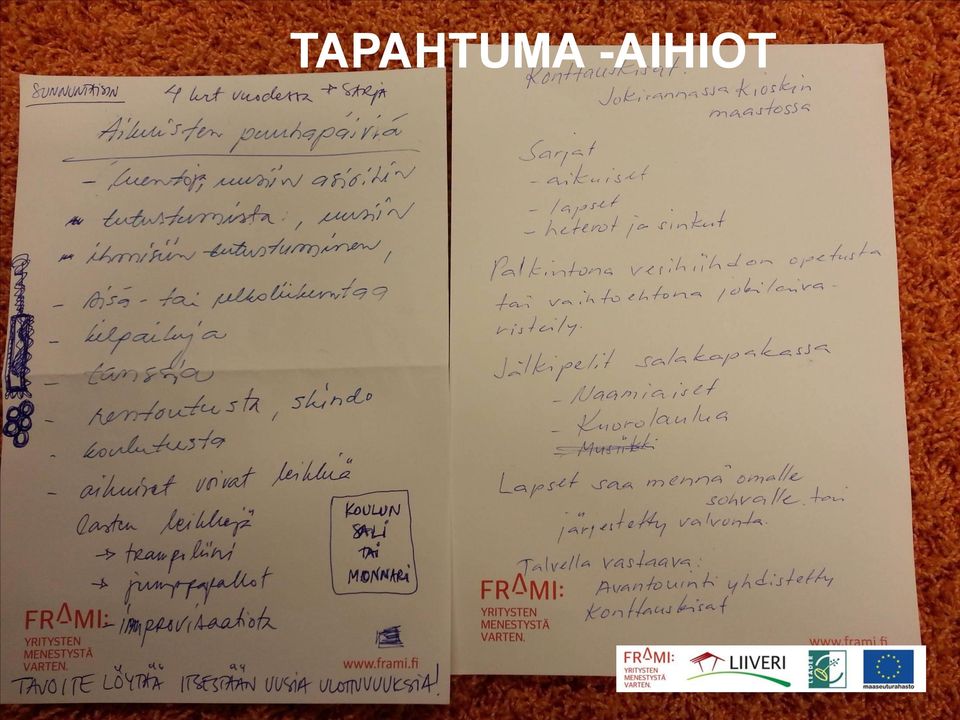 TAPAHTUMA -AIHIOT
SUNNUNTAISIN
4 krt vuodessa + SARJA
Aikuisten puuhapäiviä
- luentoja, uusiin asioihin
- tutustumista, uusiin
- ihmisiin tutustuminen,
- sisä- tai ulkoliikuntaa
- kilpailuja
- tanssia
- rentoutusta, shindo
- koulutusta
- aikuiset voivat leikkiä
lasten leikkejä
→ trampoliini
→ jumppapallot
- improvisaatiota
KOULUN
SALI
TAI
MONNARI
FRAMI:
YRITYSTEN
MENESTYSTÄ
VARTEN.
www.frami.fi
TAVOITE LÖYTÄÄ ITSESTÄÄN UUSIA ULOTTUVUUKSIA!
Konttauskisat:
Jokirannassa kioskin
maastossa
Sarjat
- aikuiset
- lapset
- heterot ja sinkut
Palkintona vesihiihdon opetusta
tai vaihtoehtona jokilaiva-
risteily.
Jälkipelit salakapakassa
- Naamiaiset
- Kuorolaulua
- Musiikki
Lapset saa mennä omalle
sohvalle tai
järjestetty valvonta.
Talvella vastaava:
Avantouinti yhdistetty
Konttauskisat
FRAMI:
YRITYSTEN
MENESTYSTÄ
VARTEN.
www.frami.fi
FRAMI:
YRITYSTEN
MENESTYSTÄ
VARTEN.
LIIVERI
LEADER
maaseuturahasto